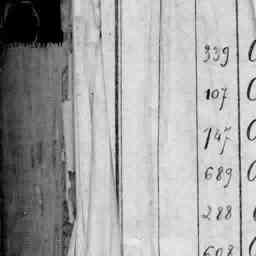 339
107
147
689
288
608